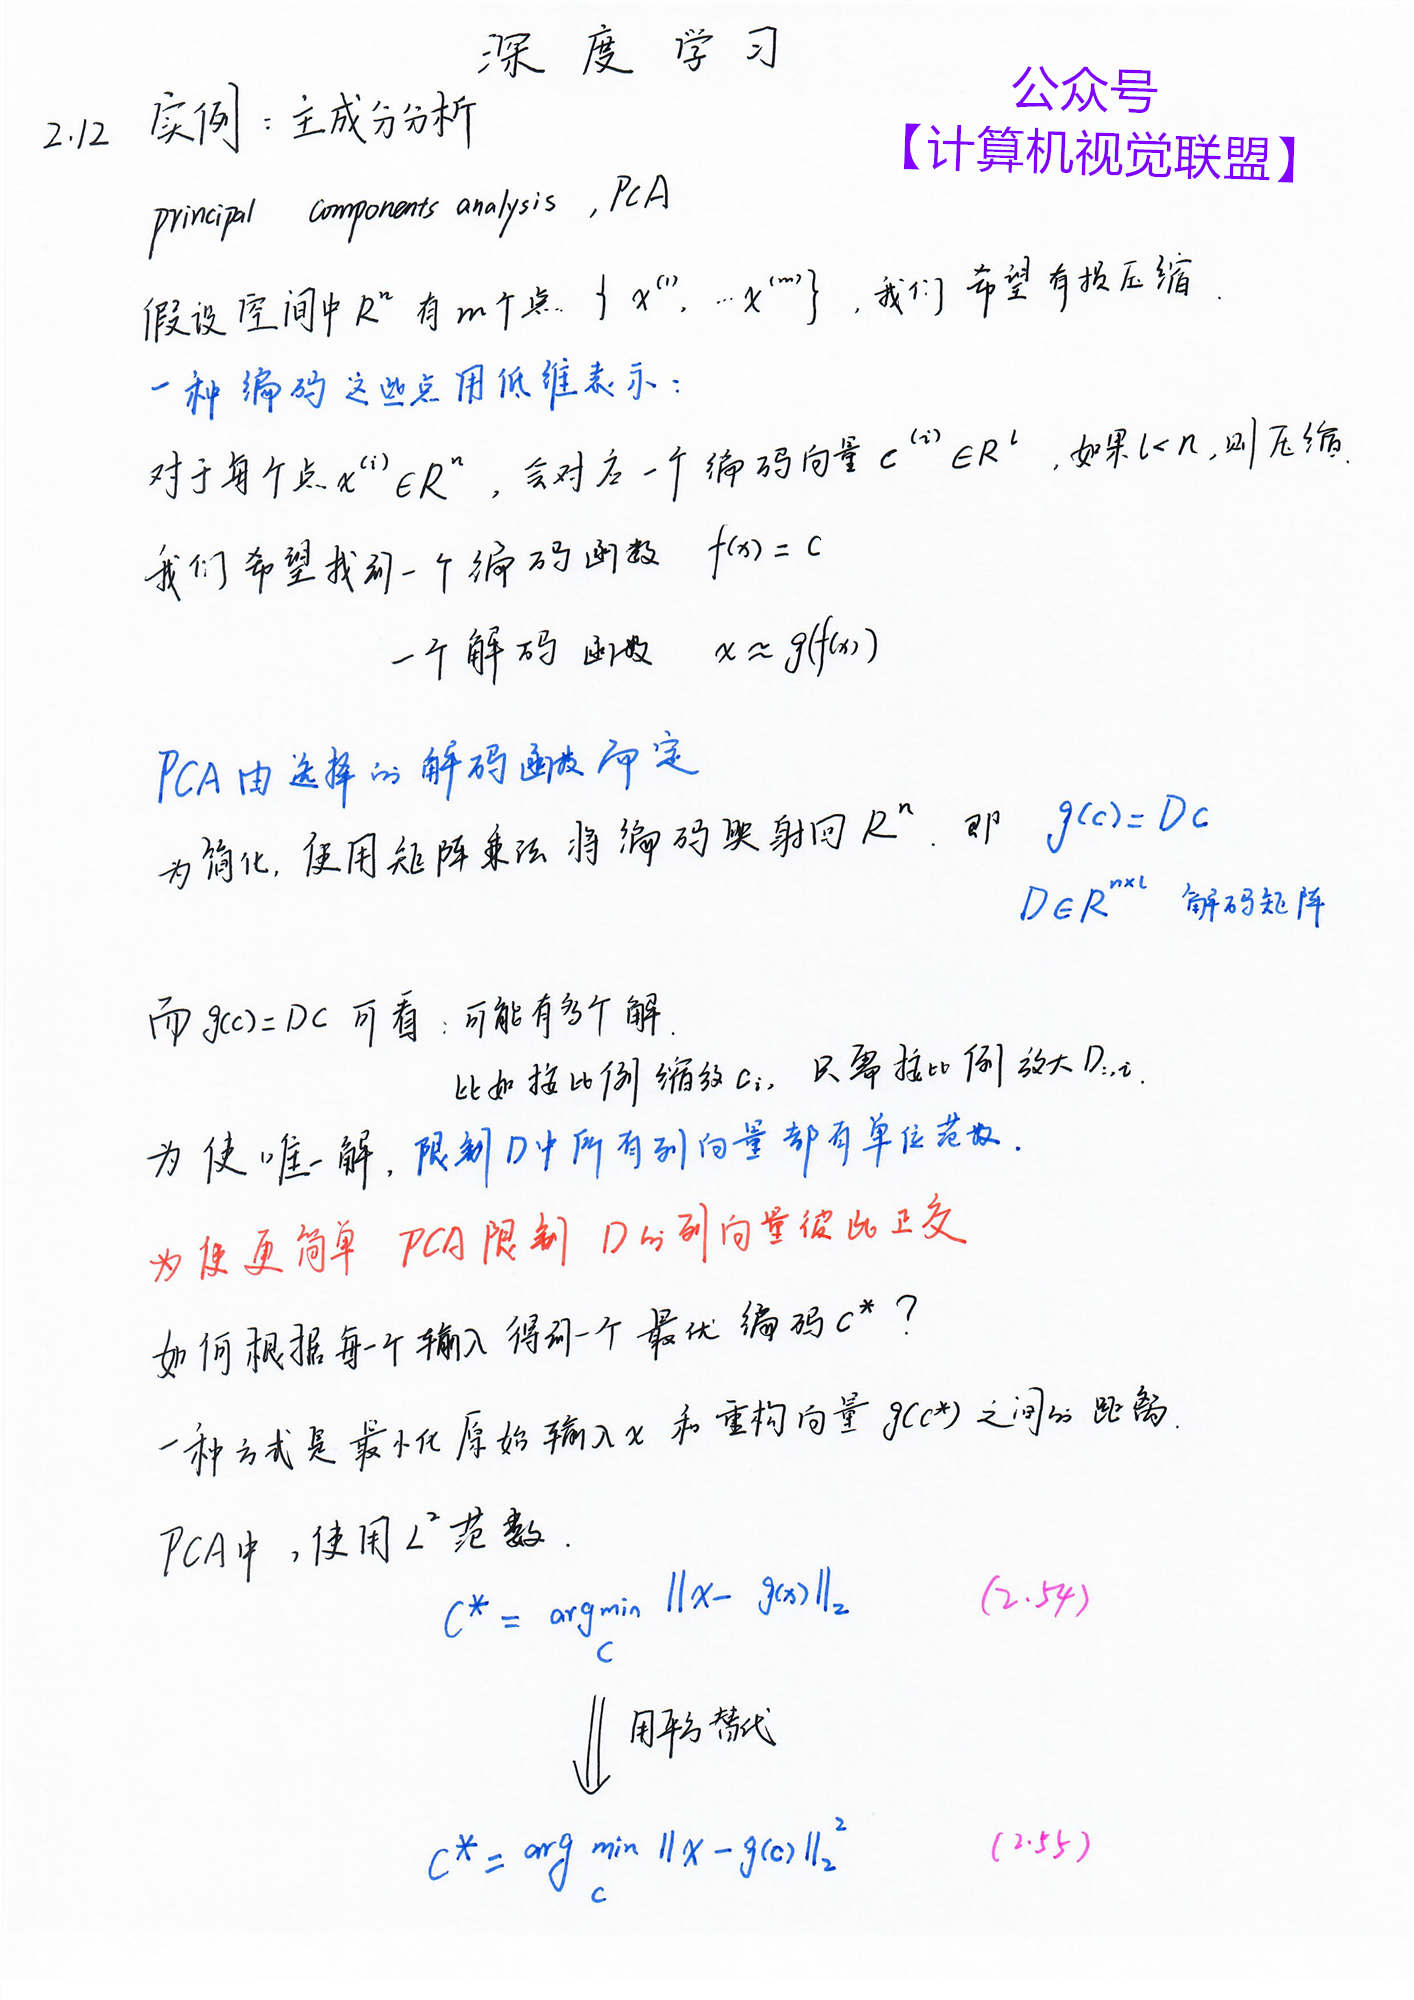 深度学习
公众号
【计算机视觉联盟】
2.12 实例：主成分分析
principal components analysis , PCA
假设空间中 Rⁿ 有 m个点 { x⁽¹⁾, … x⁽ᵐ⁾} , 我们希望有损压缩.
一种编码这些点用低维表示：
对于每个点 x⁽ⁱ⁾ ∈ Rⁿ , 会对应一个编码向量 c⁽ⁱ⁾ ∈ Rˡ , 如果 l < n, 则压缩.
我们希望找到一个编码函数 f(x) = c
一个解码函数 x ≈ g(f(x))
PCA 由选择的解码函数而定
为简化, 使用矩阵乘法将编码映射回 Rⁿ. 即 g(c) = Dc
D ∈ Rⁿˣˡ 解码矩阵
而 g(c) = DC 可看：可能有多个解.
比如按比例缩放 cᵢ, 只需按比例放大 D:,i.
为使唯一解, 限制 D中所有列向量都有单位范数.
为使更简单 PCA限制 D的列向量彼此正交
如何根据每一个输入得到一个最优编码 c* ?
一种方式是最小化原始输入 x 和重构向量 g(c*) 之间的距离.
PCA中 , 使用 L² 范数.
C* = argmin ||x - g(x)||₂ (2.54)
c
用平方替代
C* = arg min ||x - g(c)||₂² (2.55)
c